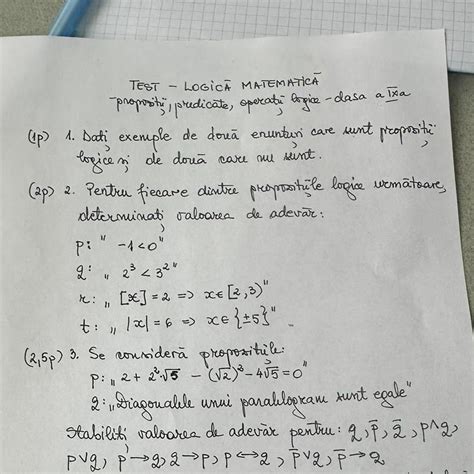 TEST – LOGICĂ MATEMATICĂ
-propoziții, predicate, operații logice - clasa a IXa
(1p) 1. Dați exemple de două enunțuri care sunt propoziții
logice și de două care nu sunt.
(2p) 2. Pentru fiecare dintre propozițiile logice următoare,
determinați valoarea de adevăr:
p: " -1<0"
q: „ 2³ < 3²"
r: „ [x]=2 => x∈[2,3)"
t: „ |x|=6 => x∈{±5}"
(2,5p) 3. Se consideră propozițiile:
p: „ 2 + 2²·√5 - (√2)² - 4√5 = 0"
q: „Diagonalele unui paralelogram sunt egale"
Stabiliți valoarea de adevăr pentru: q, p̄, q̄, p∧q,
p∨q, p→q, q→p, p↔q, p̄∨q, p̄→q